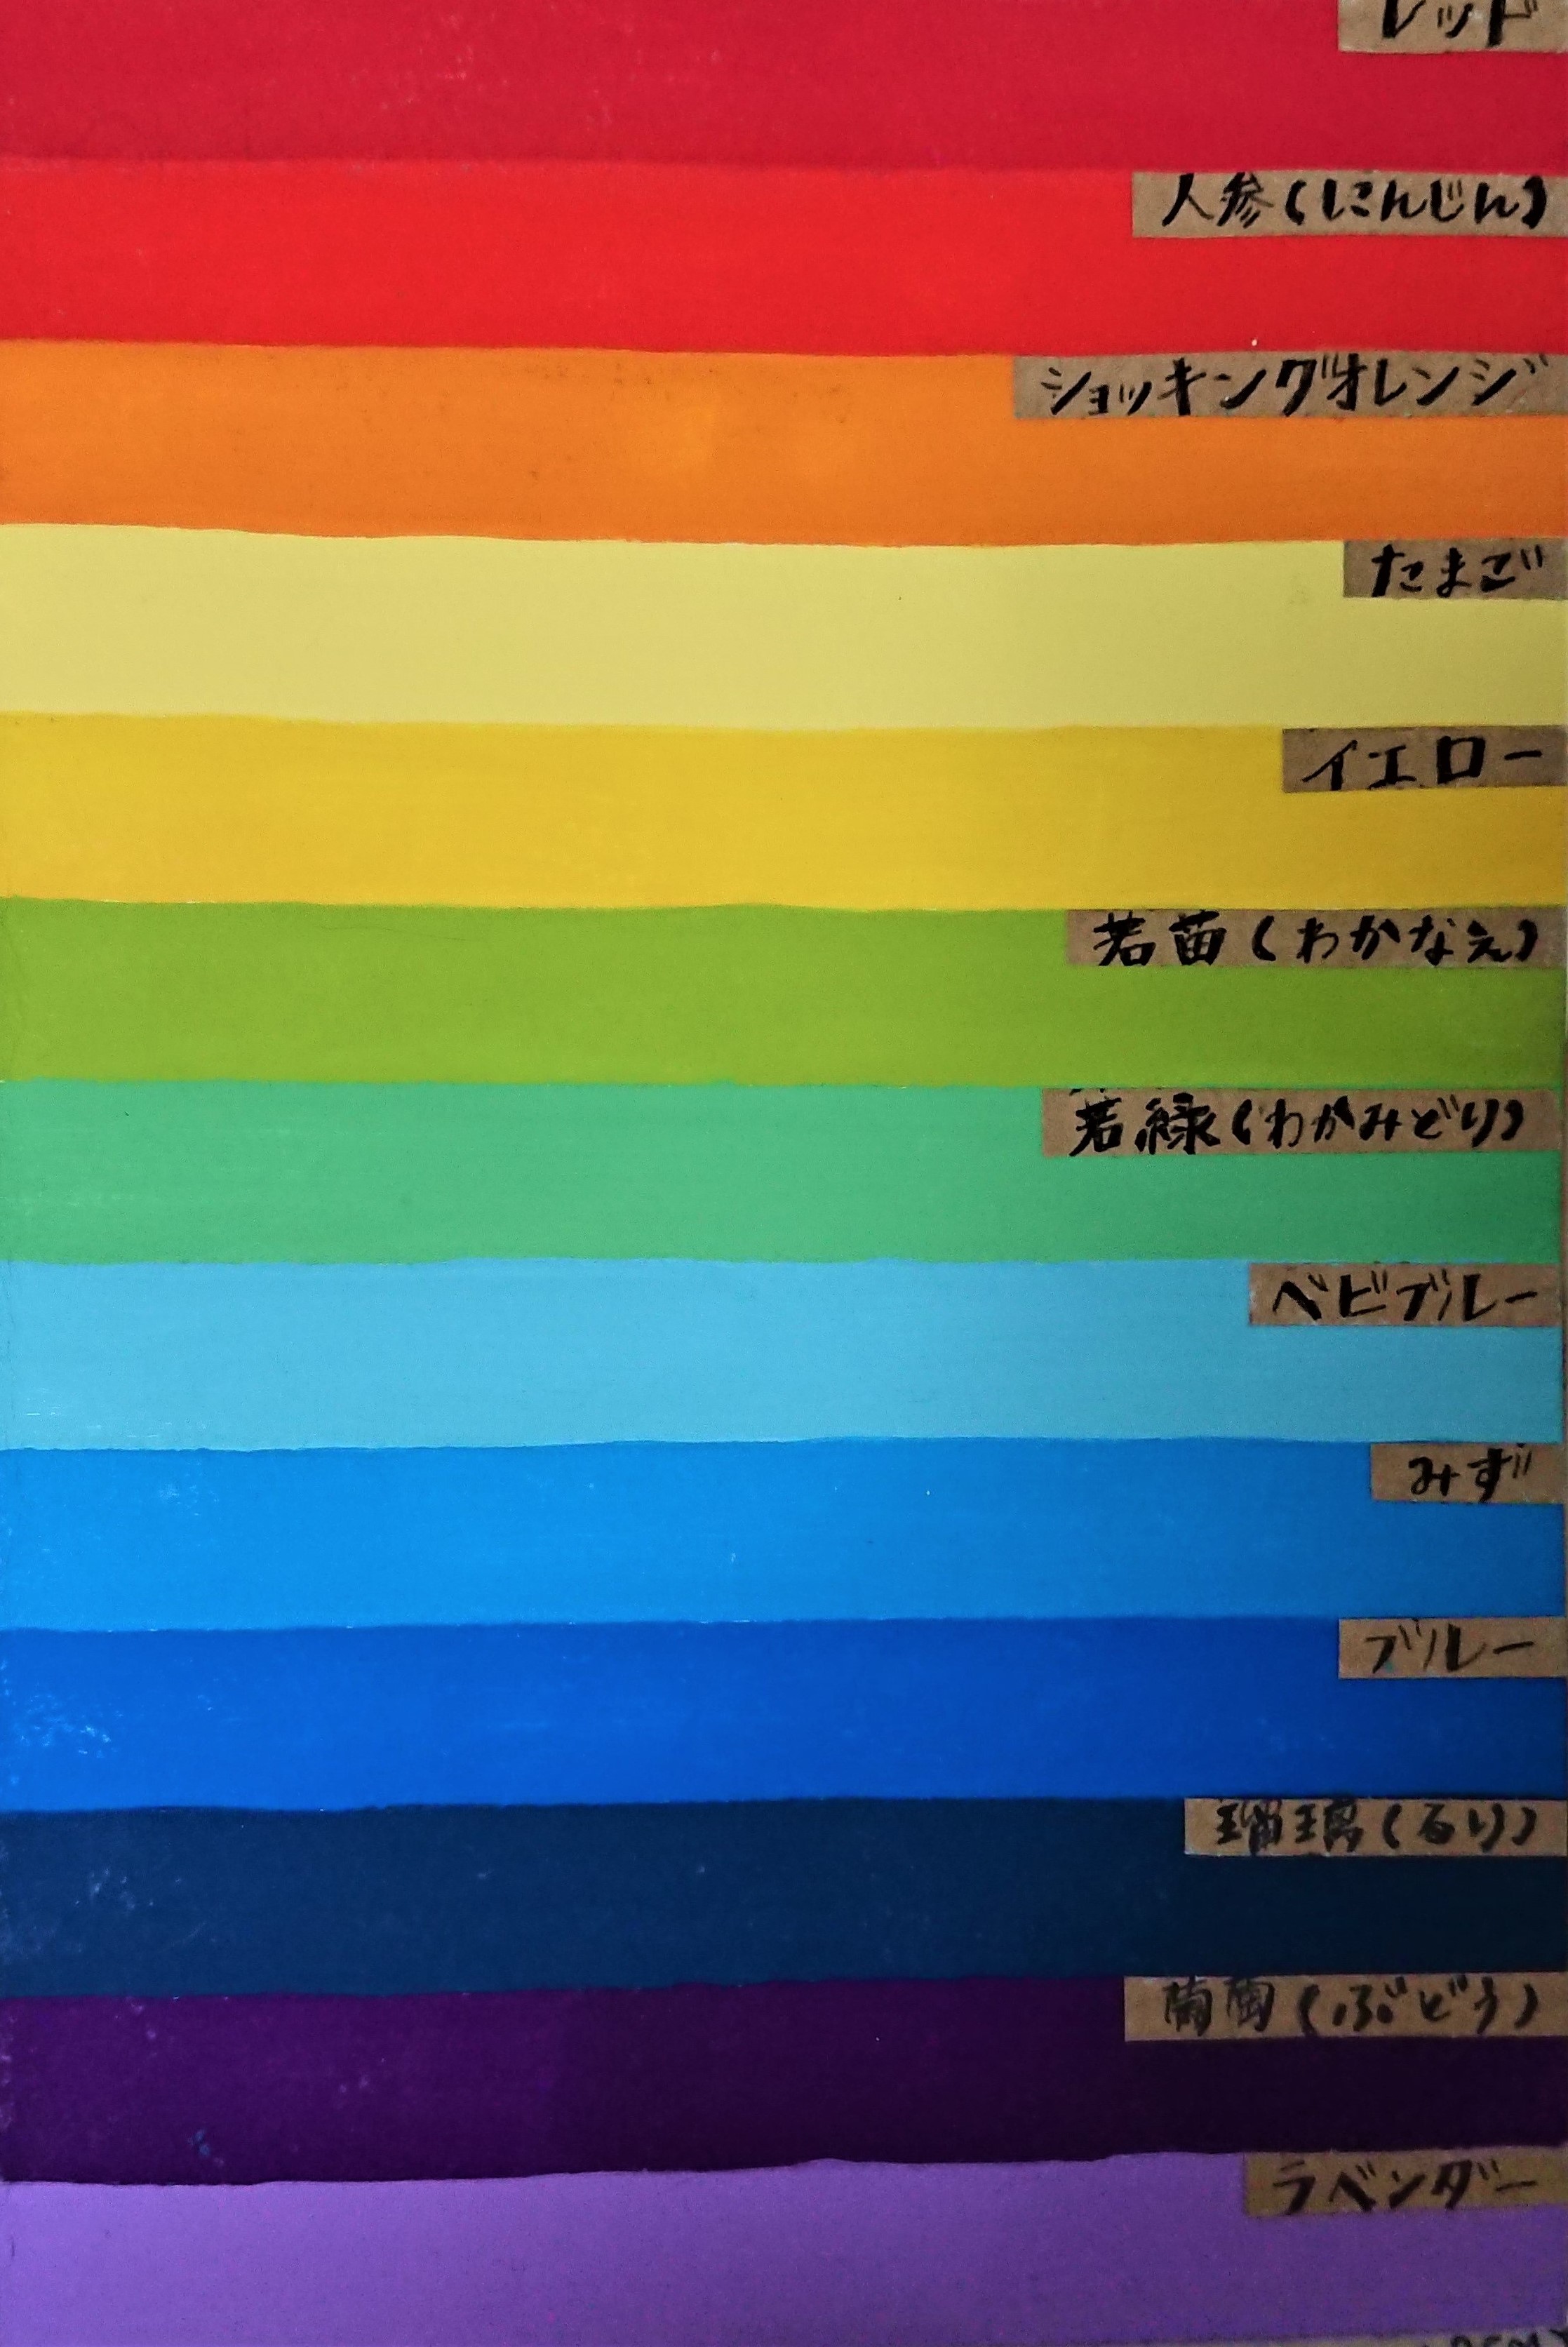 レッド
人参(にんじん)
ショッキングオレンジ
たまご
イエロー
若苗(わかなえ)
若緑(わかみどり)
ベビブルー
みず
ブルー
瑠璃(るり)
葡萄(ぶどう)
ラベンダー